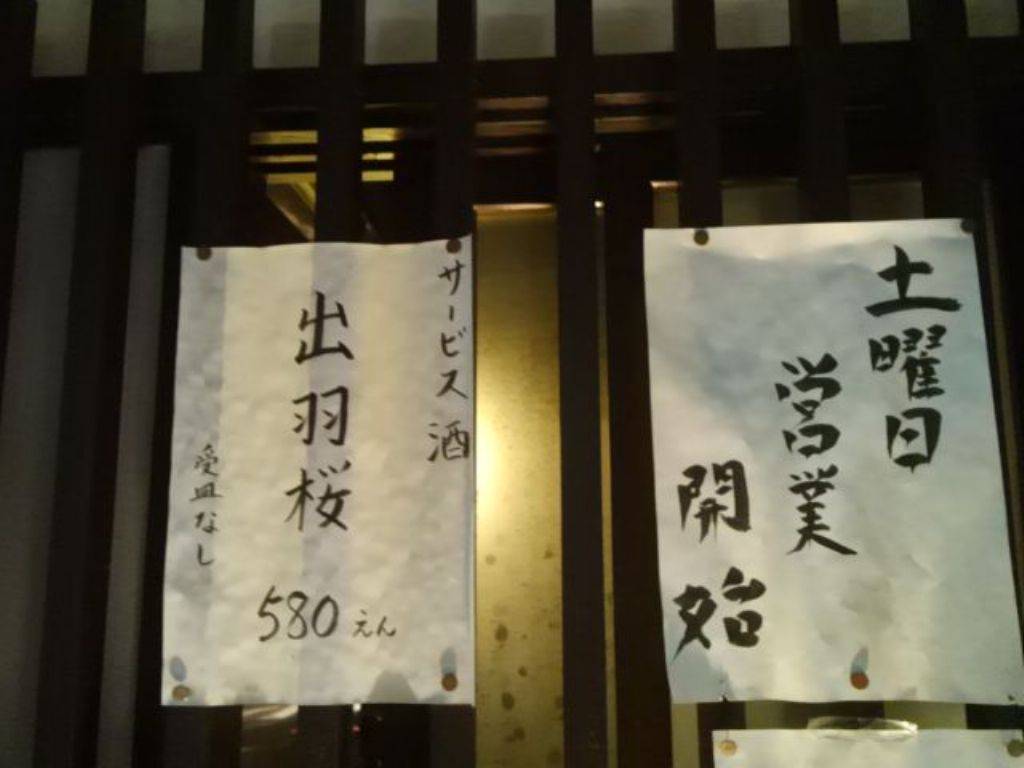 土曜日
営業
開始
サービス酒
出羽桜
580えん
受皿なし